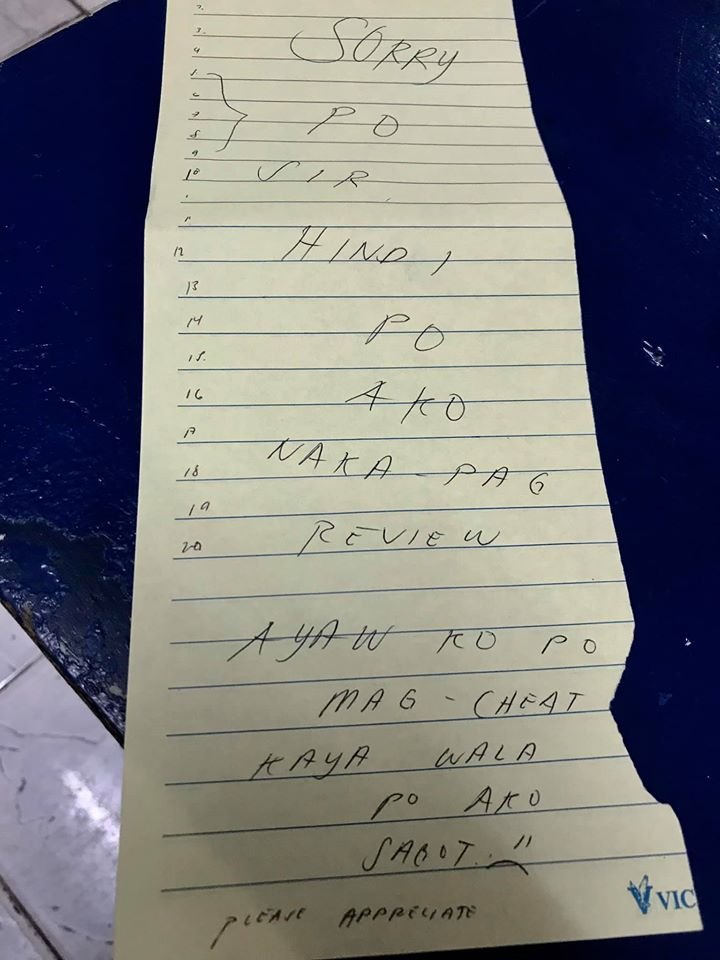 2.
3. SORRY
4
5
6
7 PO
8
9
10 SIR
11
12 HINDI
13
14 PO
15.
16 AKO
17
18 NAKA-PAG
19
20 REVIEW
AYAW KO PO
MAG-CHEAT
KAYA WALA
PO AKO
SAGOT.
PLEASE APPRECIATE
VIC